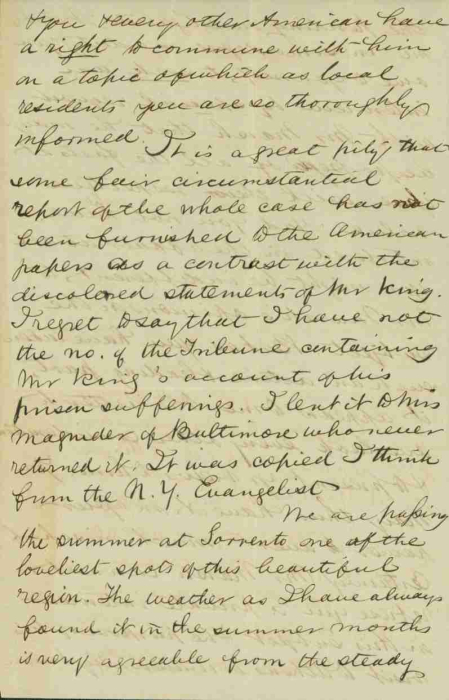 & you & every other American have
a right to commune with him
on a topic of which as local
residents you are so thoroughly
informed. It is a great pity that
some fair circumstantial
report of the whole case has not
been furnished to the American
papers as a contrast with the
discolored statements of Mr King.
I regret to say that I have not
the no. of the Tribune containing
Mr King's account of his
prison sufferings. I lent it to Mrs
Magruder of Baltimore who never
returned it. It was copied I think
from the N. Y. Evangelist
We are passing
the summer at Sorrento one of the
loveliest spots of this beautiful
region. The weather as I have always
found it in the summer months
is very agreeable from the steady